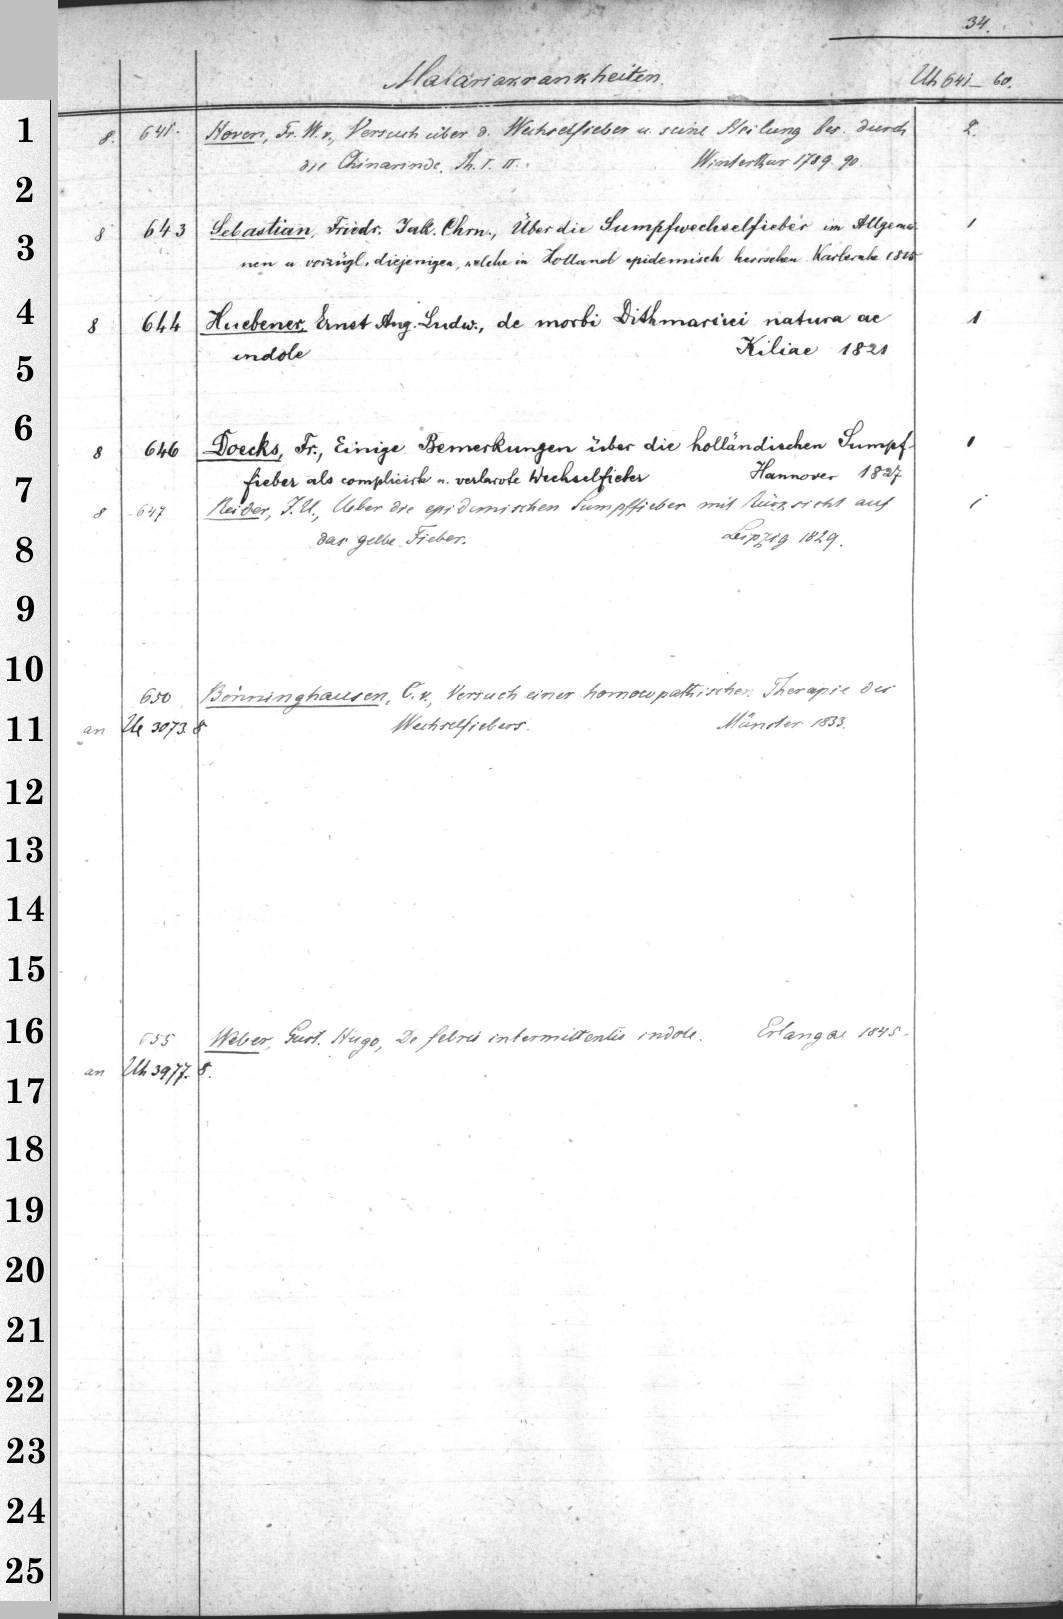 34.
Malariakrankheiten.
Uh 641–60.
1 8. 641. Hoven, Fr. W. v., Versuch über d. Wechselfieber u. seine Heilung bes. durch 2.
die Chinarinde. Th. I. II. Winterthur 1789. 90.
2
3 8 643 Sebastian, Friedr. Jak. Chrn., Über die Sumpfwechselfieber im Allgemei- 1
nen u vorzügl. diejenigen, welche in Holland epidemisch herrschen Karlsruhe 1815
4 8 644 Huebener, Ernst Aug. Ludw., de morbi Dithmarsici natura ac 1
5 indole Kiliae 1821
6 8 646 Doecks, Fr., Einige Bemerkungen über die holländischen Sumpf- 1
7 fieber als complicirte u. verlarvte Wechselfieber Hannover 1827
8 647 Reider, J. U., Ueber die epidemischen Sumpffieber mit Rücksicht auf 1
8 das gelbe Fieber. Leipzig 1829.
9
10
650 Bönninghausen, C. v., Versuch einer homoeopathischen Therapie des
11 an Ue 3073. 8 Wechselfiebers. Münster 1833.
12
13
14
15
16 655 Weber, Gust. Hugo, De febris intermittentis indole. Erlangae 1845.
17 an Uh 3977. 8.
18
19
20
21
22
23
24
25